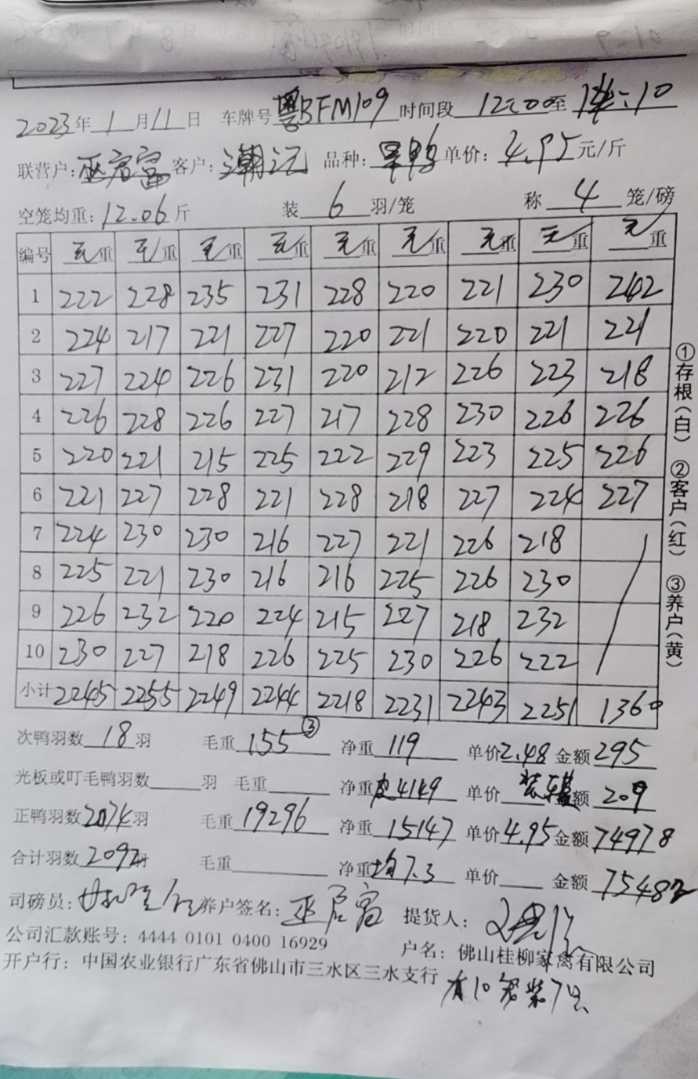 2023年1月11日 车牌号粤BFM109时间段12:00至:10
联营户:巫居富客户:潮记 品种:旱鸭单价:4.95元/斤
空笼均重:12.06斤 装6羽/笼 称4笼/磅
编号 毛重 毛重 毛重 毛重 毛重 毛重 毛重 毛重 毛重
1 222 228 235 231 228 220 221 230 242
2 224 217 221 227 220 221 220 221 221
3 227 224 226 231 220 212 226 223 218
4 226 228 226 227 217 228 230 226 226
5 220 221 215 225 222 229 223 225 226
6 221 227 228 221 228 218 227 224 227
7 224 230 230 216 227 221 226 218
8 225 221 230 216 216 225 226 230
9 226 232 220 224 215 227 218 232
10 230 227 218 226 225 230 226 222
小计 2245 2255 2249 2244 2218 2231 2243 2251 1360
次鸭羽数18羽 毛重155③ 净重119 单价2.48金额295
光板或叮毛鸭羽数羽 毛重 净重皮4149 单价装车额209
正鸭羽数2074羽 毛重19296 净重15147 单价4.95金额74978
合计羽数2092羽 毛重 净重均7.3 单价 金额75482
司磅员: 养户签名:巫居富 提货人:
公司汇款账号:4444 0101 0400 16929 户名:佛山桂柳家禽有限公司
开户行:中国农业银行广东省佛山市三水区三水支行
有10笼装7只
①存根(白) ②客户(红) ③养户(黄)